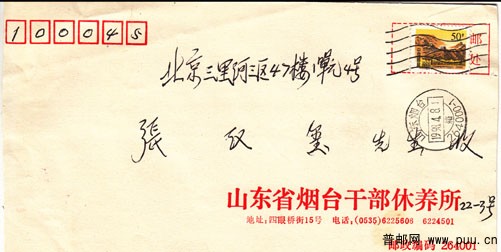 100045
50分
邮
处
北京三里河三区47楼
4号
1998.4.8
264001
張 双 玺 先生 收
山东省烟台干部休养所 22-3号
地址:四眼桥街15号 电话,(0535)6225608 6224501
邮政编码 264001
普邮网 www.puu.cn